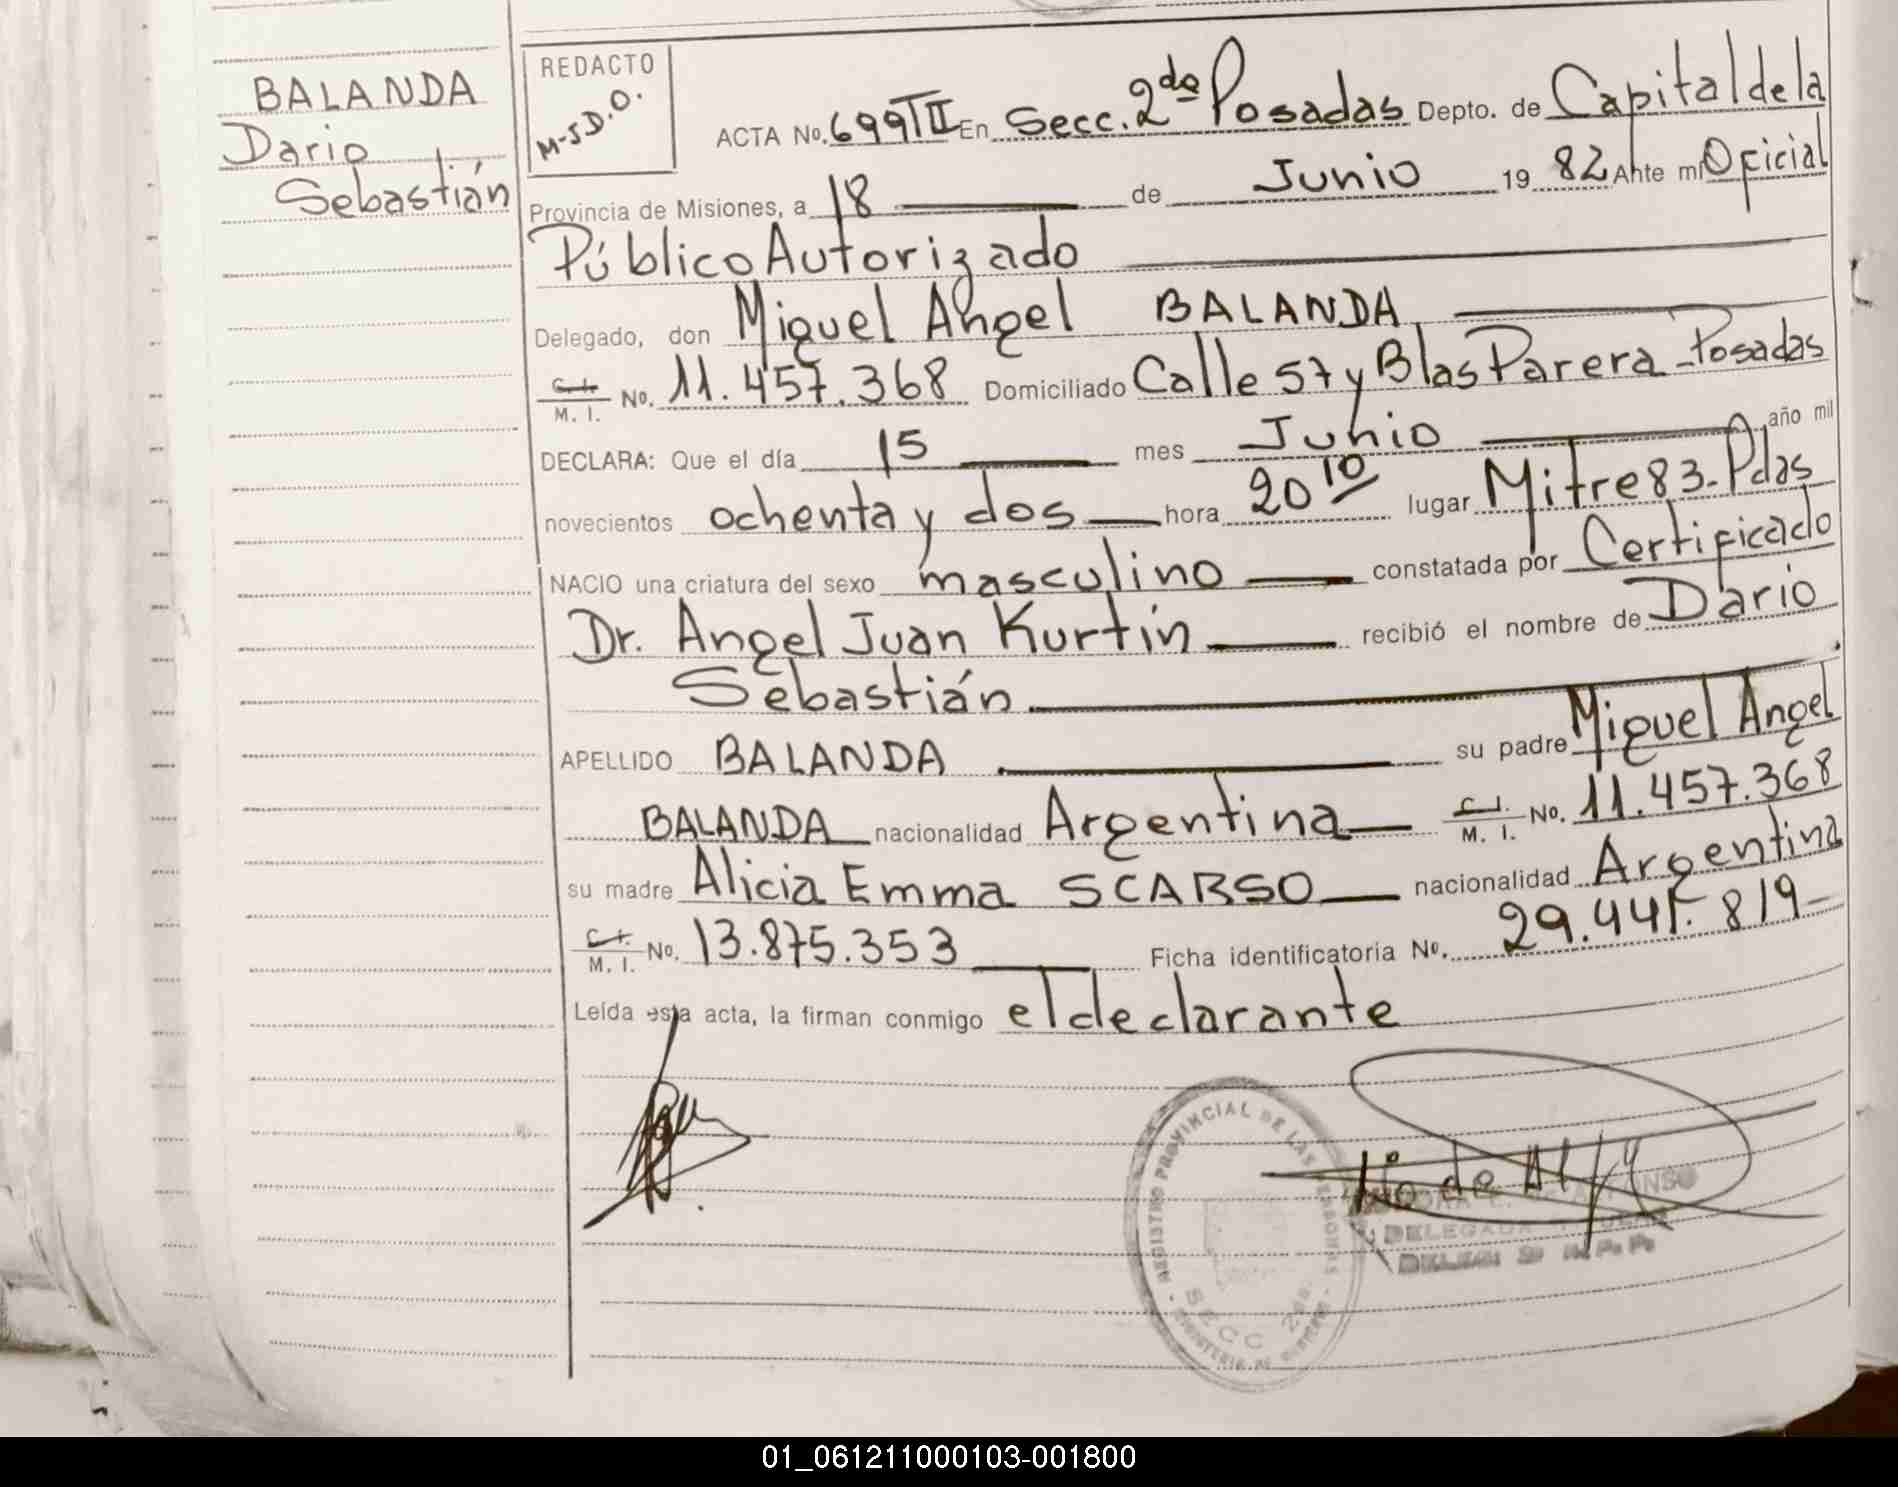 BALANDA
Dario
Sebastián
REDACTO
M-J D.O.
ACTA No. 699 TII En Secc. 2da Posadas Depto. de Capital de la
Provincia de Misiones, a 18 de Junio 19 82 Ante mi Oficial
Público Autorizado
Delegado, don Miguel Angel BALANDA
C. I. M. I. No. 11.457.368 Domiciliado Calle 57 y Blas Parera - Posadas
DECLARA: Que el día 15 mes Junio año mil
novecientos ochenta y dos hora 20 10 lugar Mitre 83 - Pdas
NACIO una criatura del sexo masculino constatada por Certificado
Dr. Angel Juan Kurtin recibió el nombre de Dario
Sebastián
APELLIDO BALANDA su padre Miguel Angel
BALANDA nacionalidad Argentina C. I. M. I. No. 11.457.368
su madre Alicia Emma SCARSO nacionalidad Argentina
C. I. M. I. No. 13.875.353 Ficha identificatoria No. 29.441.819-
Leída esta acta, la firman conmigo el declarante
REGISTRO PROVINCIAL DE LAS PERSONAS
SECC 2da.
DELEGADA TITULAR
01_061211000103-001800